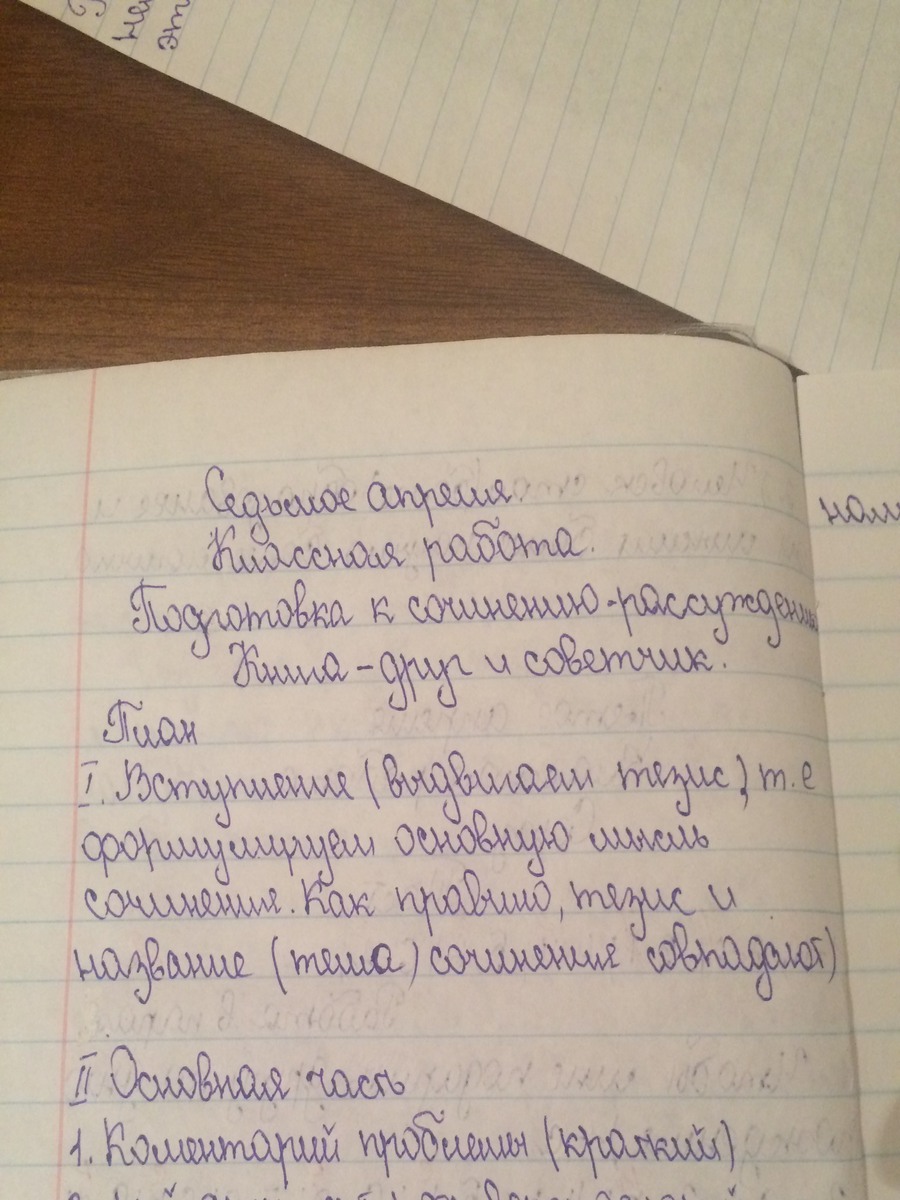 Седьмое апреля
Классная работа.
Подготовка к сочинению-рассуждению
Книга - друг и советчик.
План
I. Вступление (выдвигаем тезис, т.е
формулируем основную мысль
сочинения. Как правило, тезис и
название (тема) сочинения совпадают)
II Основная часть
1. Коментарий проблемы (краткий)